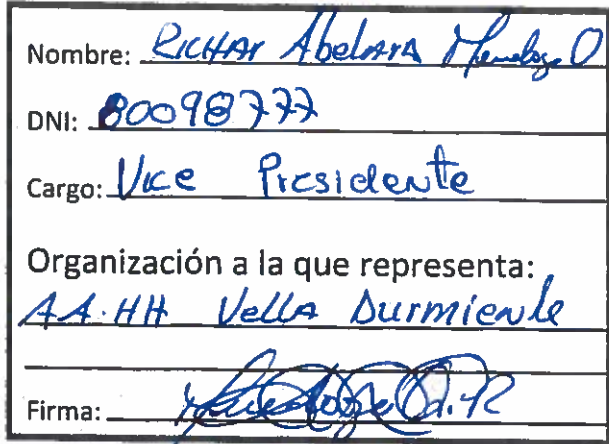 Nombre: RICHAR Abelara Mendoza O
DNI: 80098777
Cargo: Vice Presidente
Organización a la que representa:
AA.HH Vella Durmiente
Firma: